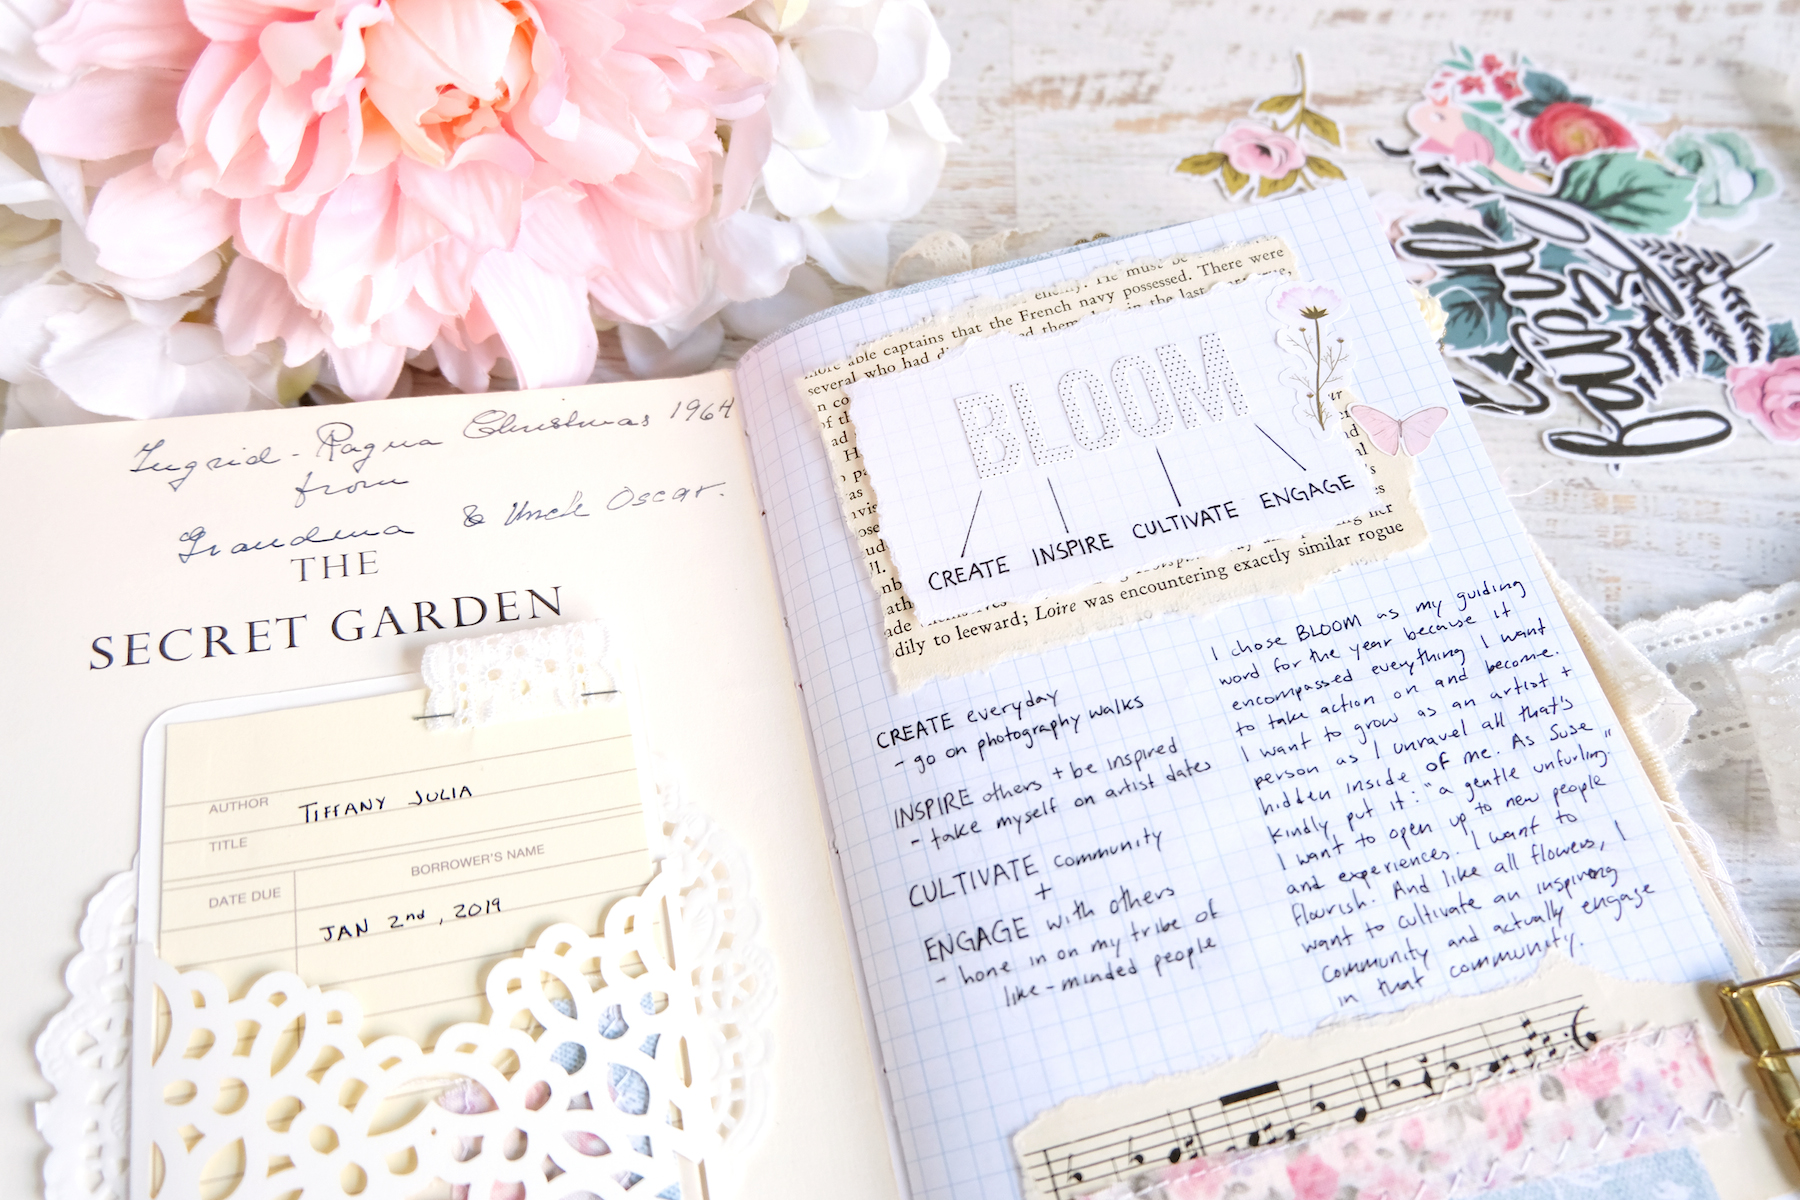 Ingrid - Ragna Christmas 1964
from
Grandma & Uncle Oscar.
THE
SECRET GARDEN
AUTHOR TIFFANY JULIA
TITLE
BORROWER'S NAME
DATE DUE
JAN 2nd, 2019
enemy. He must be
more able captains that the French navy possessed. There were
several who had
in the last
BLOOM
CREATE INSPIRE CULTIVATE ENGAGE
ade themselves
was encountering exactly similar rogue
dily to leeward; Loire
CREATE everyday
- go on photography walks
INSPIRE others + be inspired
- take myself on artist dates
CULTIVATE community
+
ENGAGE with others
- hone in on my tribe of
like-minded people
I chose BLOOM as my guiding
word for the year because it
encompassed everything I want
to take action on and become.
I want to grow as an artist +
person as I unravel all that's
hidden inside of me. As Suse
kindly put it: "a gentle unfurling."
I want to open up to new people
and experiences. I want to
flourish. And like all flowers, I
want to cultivate an inspiring
community and actually engage
in that community.
beautiful